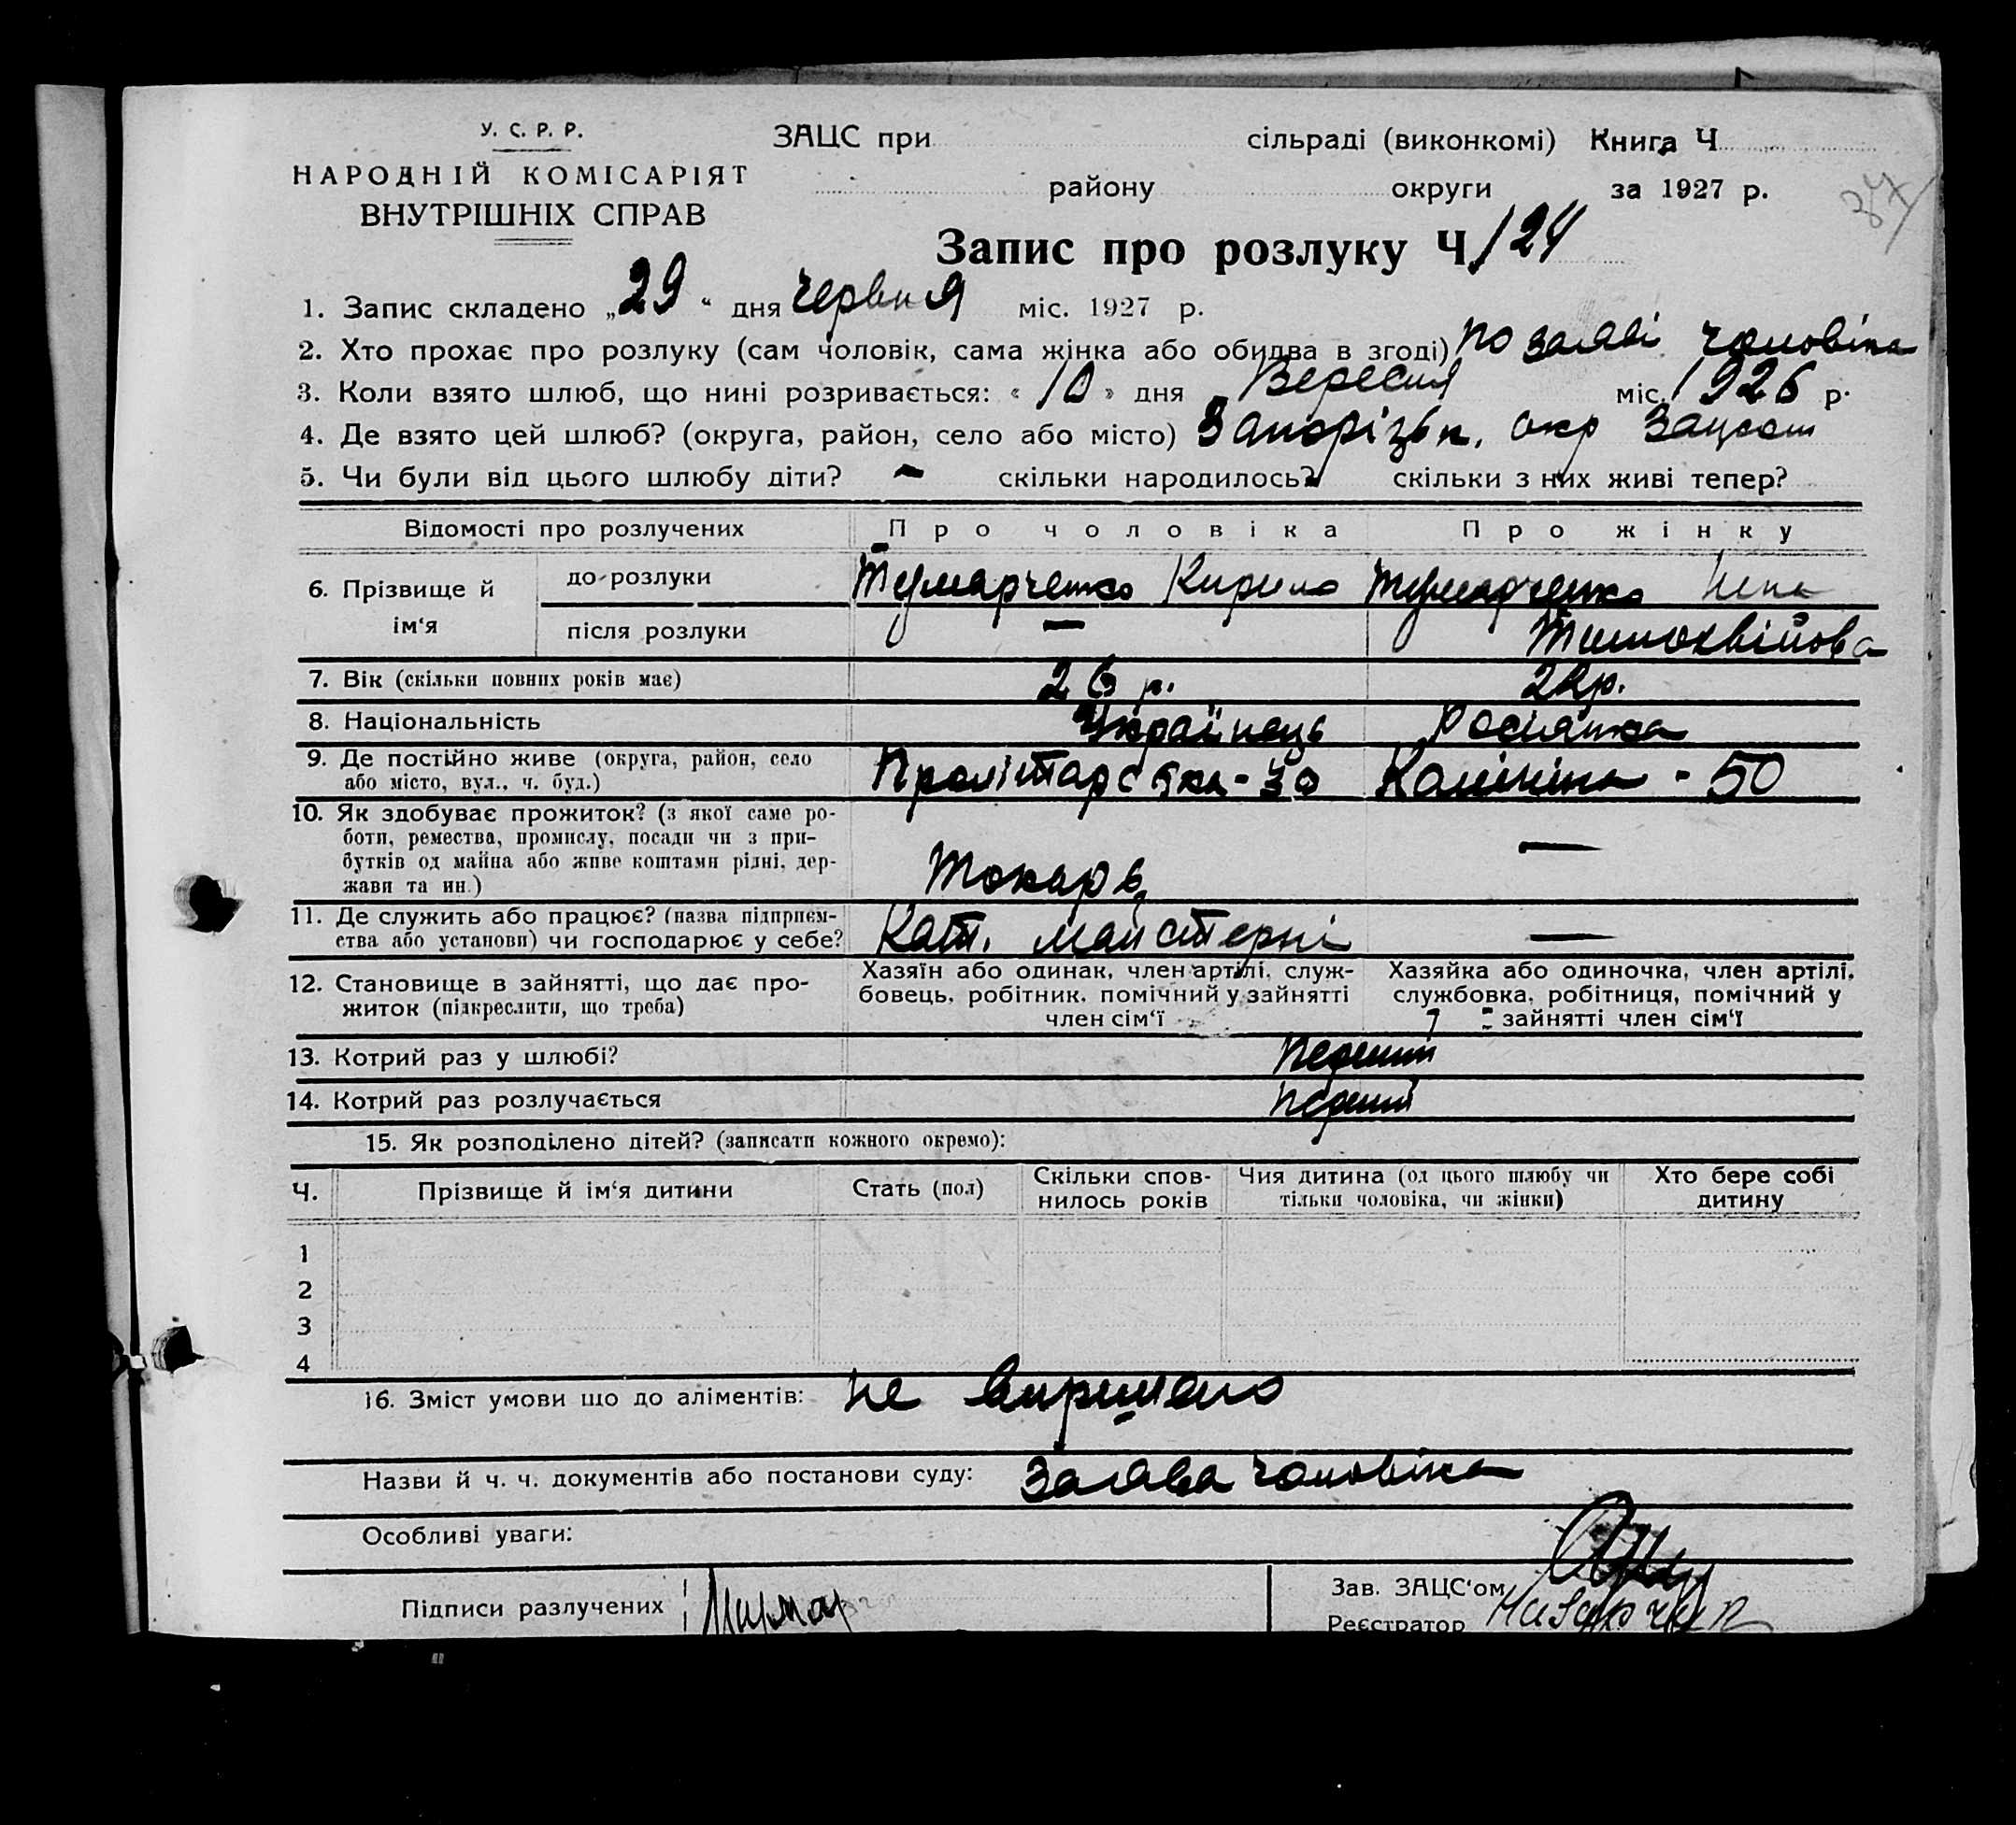 У. С. Р. Р.
НАРОДНІЙ КОМІСАРІЯТ
ВНУТРІШНІХ СПРАВ
ЗАЦС при сільраді (виконкомі) Книга Ч
району округи за 1927 р.
37
Запис про розлуку Ч. 124
1. Запис складено „29“ дня червня міс. 1927 р.
2. Хто прохає про розлуку (сам чоловік, сама жінка або обидва в згоді) по заяві чоловіка
3. Коли взято шлюб, що нині розривається: «10» дня Вересня міс. 1926 р.
4. Де взято цей шлюб? (округа, район, село або місто) Запорізьк. окр Зацсом
5. Чи були від цього шлюбу діти? — скільки народилось? скільки з них живі тепер?
Відомості про розлучених Про чоловіка Про жінку
6. Прізвище й ім‘я до розлуки Кирило
після розлуки —
7. Вік (скільки повних років має) 26 р. 22 р.
8. Національність Українець Росіянка
9. Де постійно живе (округа, район, село Пролітарська - 30 Калініна - 50
або місто, вул., ч. буд.)
10. Як здобуває прожиток? (з якої саме ро-
боти, ремества, промислу, посади чи з при-
бутків од майна або живе коштами рідні, дер-
жави та ин.) Токарь —
11. Де служить або працює? (назва підприєм-
ства або установи) чи господарює у себе? Кат. майстерні —
12. Становище в зайнятті, що дає про-
житок (підкреслити, що треба)
Хазяїн або одинак, член артілі, служ-
бовець, робітник, помічний у зайнятті
член сім‘ї
Хазяйка або одиночка, член артілі,
службовка, робітниця, помічний у
зайнятті член сім‘ї
13. Котрий раз у шлюбі? перший
14. Котрий раз розлучається перший
15. Як розподілено дітей? (записати кожного окремо):
Ч. Прізвище й ім‘я дитини Стать (пол) Скільки спов-
нилось років Чия дитина (од цього шлюбу чи
тільки чоловіка, чи жінки) Хто бере собі
дитину
1
2
3
4
16. Зміст умови що до аліментів: не вирішено
Назви й ч. ч. документів або постанови суду: Заява чоловіка
Особливі уваги:
Підписи разлучених
Зав. ЗАЦС‘ом
Реєстратор